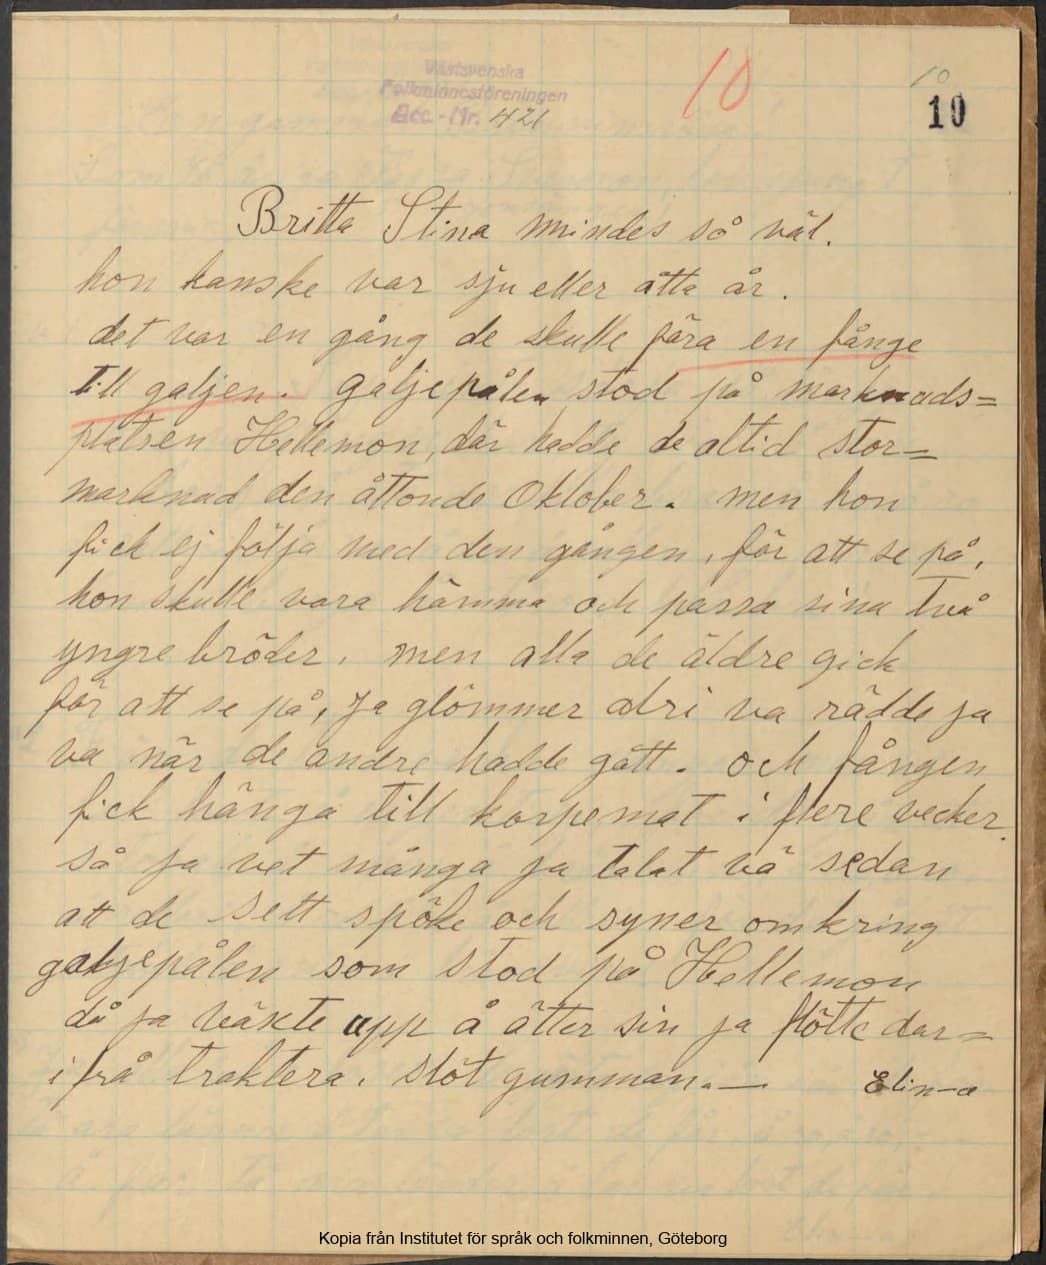 Västsvenska
Folkminnesföreningen
Acc.-Nr. 421
10
10
10
Britta Stina mindes så väl.
hon kanske var sju eller åtta år.
det var en gång de skulle föra en fånge
till galjen. galjepålen stod på marknads=
platsen Hellemon, där hadde de altid stor=
marknad den åttonde Oktober. men hon
fick ej följa med den gången, för att se på,
hon skulle vara hämma och passa sina två
yngre bröder, men alla de äldre gick
för att se på, ja glömmer aldri va rädde ja
va när de andre hadde gått. och fången
fick hänga till korpemat i flere vecker.
så ja vet många ja talat vä sedan
att de sett spöke och syner omkring
galjepålen som stod på Hellemon
då ja växte upp å ätter sin ja flötte dar=
ifrå traktera. slöt gumman.—
Elin-a
Kopia från Institutet för språk och folkminnen, Göteborg